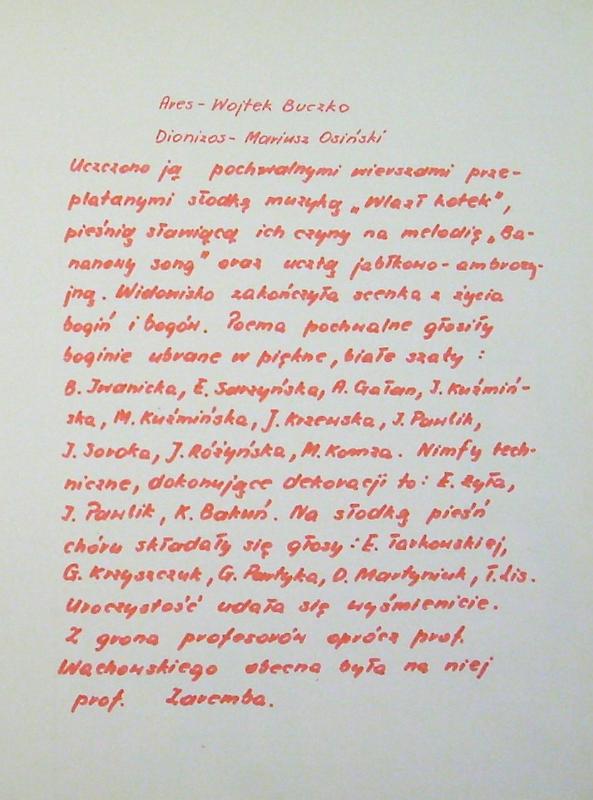 Ares - Wojtek Buczko
Dionizos - Mariusz Osiński
Uczczono ją pochwalnymi wierszami prze-
platanymi słodką muzyką „Wlazł kotek",
pieśnią sławiącą ich czyny na melodię „Ba-
nanowy song" oraz ucztą jabłkowo-ambrozy-
jną. Widowisko zakończyła scenka z życia
bogiń i bogów. Poema pochwalne głosiły
boginie ubrane w piękne, białe szaty :
B. Iwanicka, E. Saczyńska, A. Gałan, I. Kuźmiń-
ska, M. Kuźmińska, J. Krzewska, I. Pawlik,
I. Soroka, J. Różyńska, M. Komza. Nimfy tech-
niczne, dokonujące dekoracji to: E. Żyła,
I. Pawlik, K. Bakuń. Na słodką pieśń
chóru składały się głosy : E. Tarkowskiej,
G. Krzyszczuk, G. Partyka, D. Martyniuk, T. Lis.
Uroczystość udała się wyśmienicie.
Z grona profesorów oprócz prof.
Wachowskiego obecna była na niej
prof. Zaremba.